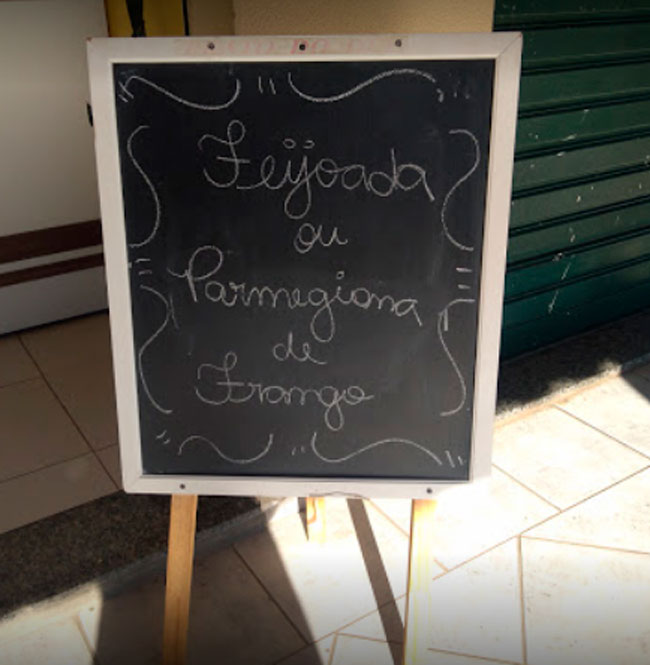 Feijoada
ou
Parmegiana
de
Frango